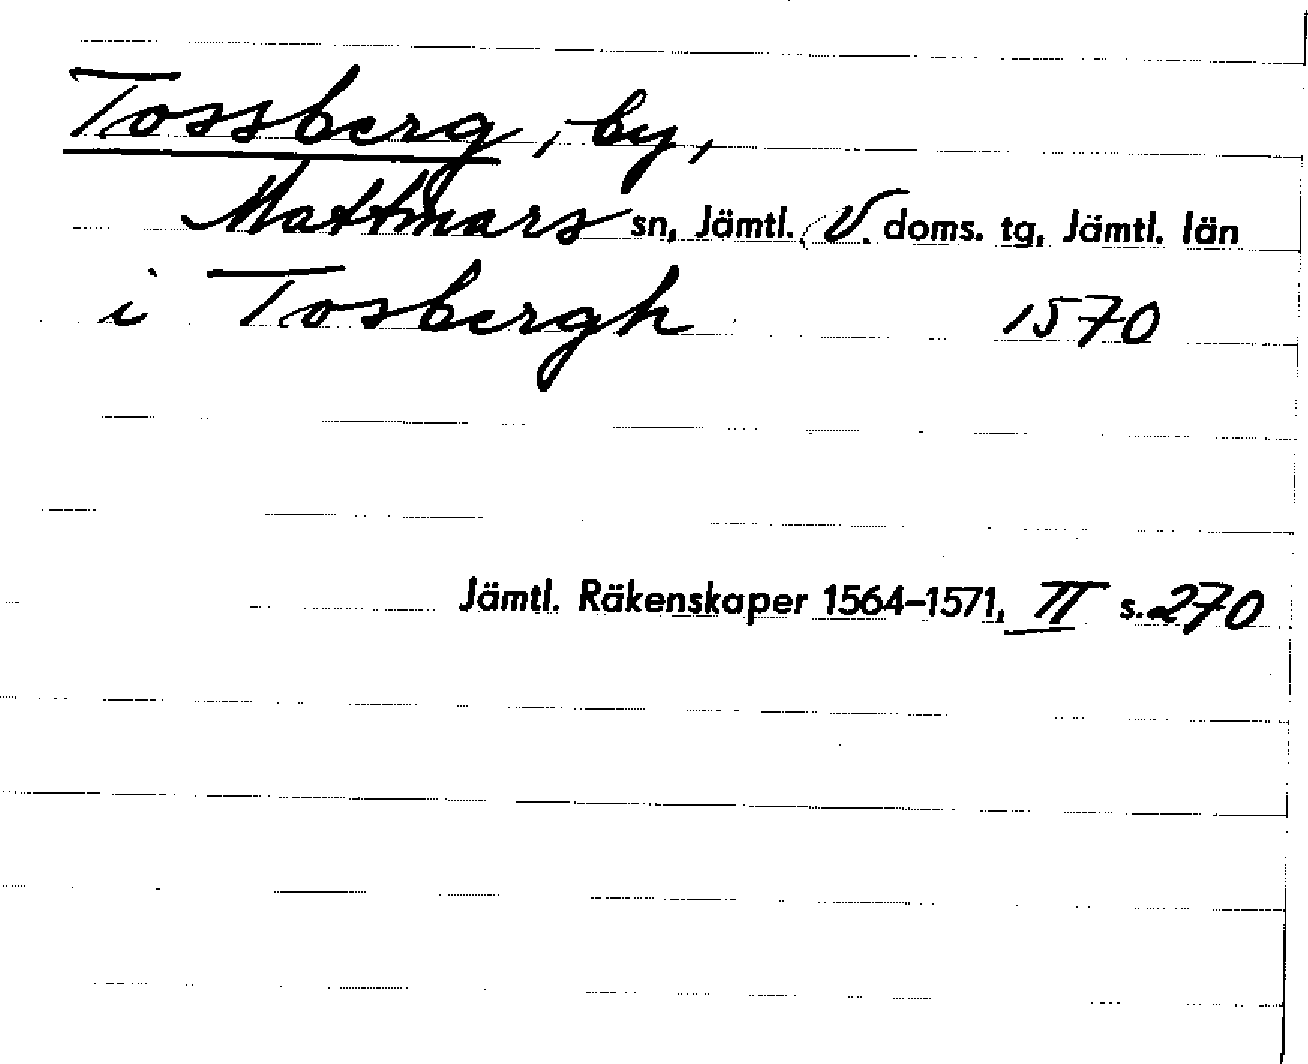 Tossberg, by,
Mattmars sn, Jämtl. V. doms. tg, Jämtl. län
i Tosbergh 1570
Jämtl. Räkenskaper 1564–1571, II s. 270